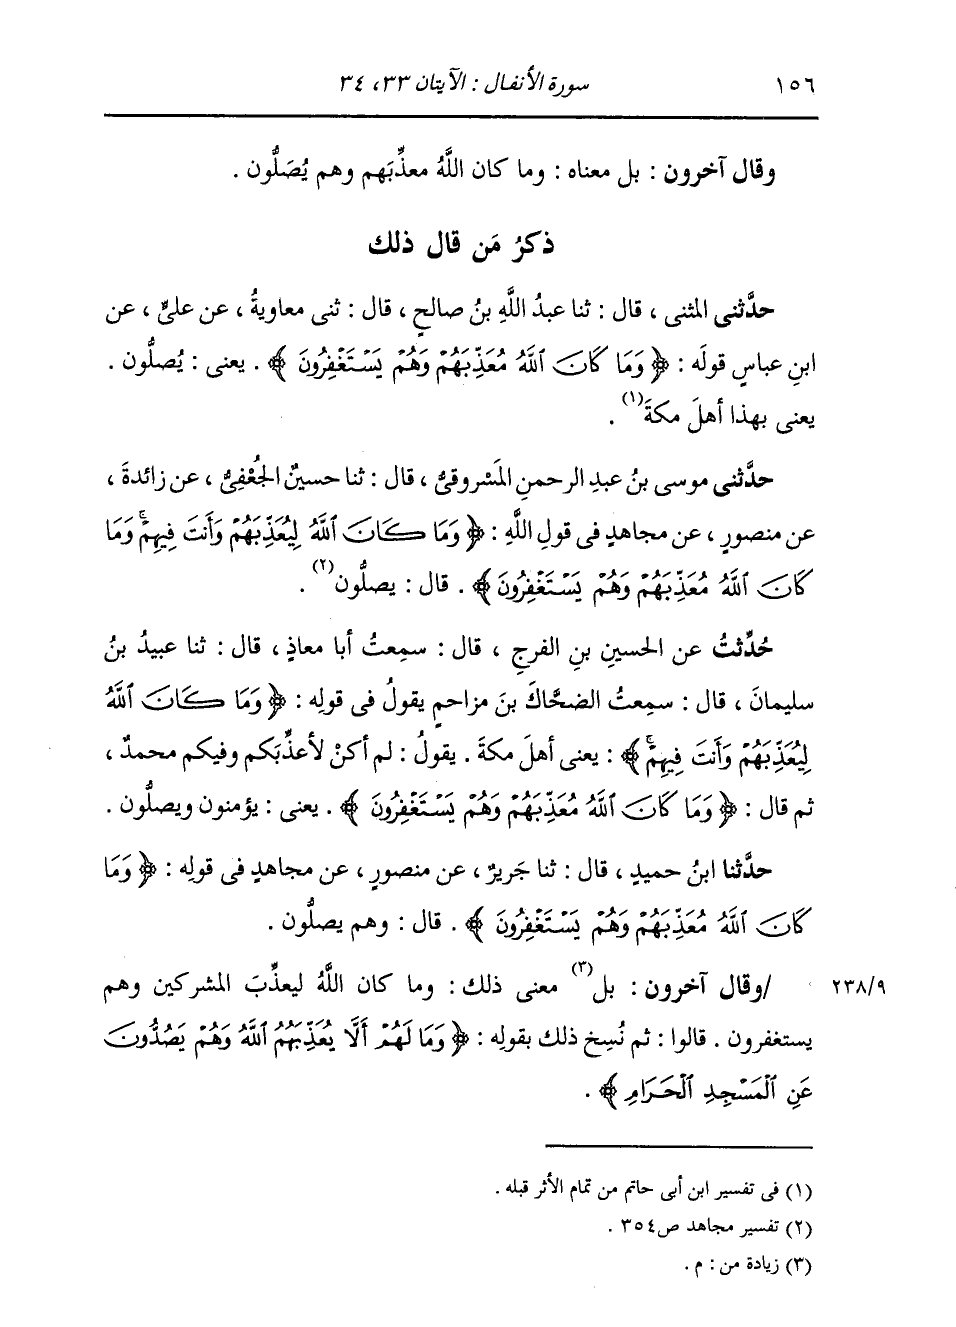 ١٥٦ سورة الأنفال : الآيتان ٣٣، ٣٤
وقال آخرون : بل معناه : وما كان اللَّهُ معذِّبَهم وهم يُصَلُّون .
ذكرُ مَن قال ذلك
حدَّثنى المثنى ، قال : ثنا عبدُ اللَّهِ بنُ صالحٍ ، قال : ثنى معاويةُ ، عن علىٍّ ، عن
ابنِ عباسٍ قولَه : ﴿ وَمَا كَانَ ٱللَّهُ مُعَذِّبَهُمْ وَهُمْ يَسْتَغْفِرُونَ ﴾ . يعنى : يُصلُّون .
يعنى بهذا أهلَ مكةَ(١) .
حدَّثنى موسى بنُ عبدِ الرحمنِ المَسْروقىُّ ، قال : ثنا حسينٌ الجُعْفِىُّ ، عن زائدةَ ،
عن منصورٍ ، عن مجاهدٍ فى قولِ اللَّهِ : ﴿ وَمَا كَانَ ٱللَّهُ لِيُعَذِّبَهُمْ وَأَنتَ فِيهِمْ ۚ وَمَا
كَانَ ٱللَّهُ مُعَذِّبَهُمْ وَهُمْ يَسْتَغْفِرُونَ ﴾ . قال : يصلُّون(٢) .
حُدِّثتُ عن الحسينِ بنِ الفرجِ ، قال : سمِعتُ أبا معاذٍ ، قال : ثنا عبيدُ بنُ
سليمانَ ، قال : سمِعتُ الضحَّاكَ بنَ مزاحمٍ يقولُ فى قولِه : ﴿ وَمَا كَانَ ٱللَّهُ
لِيُعَذِّبَهُمْ وَأَنتَ فِيهِمْ ۚ ﴾ : يعنى أهلَ مكةَ . يقولُ : لم أكنْ لأعذِّبَكم وفيكم محمدٌ ،
ثم قال : ﴿ وَمَا كَانَ ٱللَّهُ مُعَذِّبَهُمْ وَهُمْ يَسْتَغْفِرُونَ ﴾ . يعنى : يؤمنون ويصلُّون .
حدَّثنا ابنُ حميدٍ ، قال : ثنا جَريرٌ ، عن منصورٍ ، عن مجاهدٍ فى قولِه : ﴿ وَمَا
كَانَ ٱللَّهُ مُعَذِّبَهُمْ وَهُمْ يَسْتَغْفِرُونَ ﴾ . قال : وهم يصلُّون .
٢٣٨/٩ /وقال آخرون : بل(٣) معنى ذلك : وما كان اللَّهُ ليعذِّبَ المشركين وهم
يستغفرون . قالوا : ثم نُسِخ ذلك بقولِه : ﴿ وَمَا لَهُمْ أَلَّا يُعَذِّبَهُمُ ٱللَّهُ وَهُمْ يَصُدُّونَ
عَنِ ٱلْمَسْجِدِ ٱلْحَرَامِ ﴾ .
(١) فى تفسير ابن أبى حاتم من تمام الأثر قبله .
(٢) تفسير مجاهد ص٣٥٤ .
(٣) زيادة من : م .